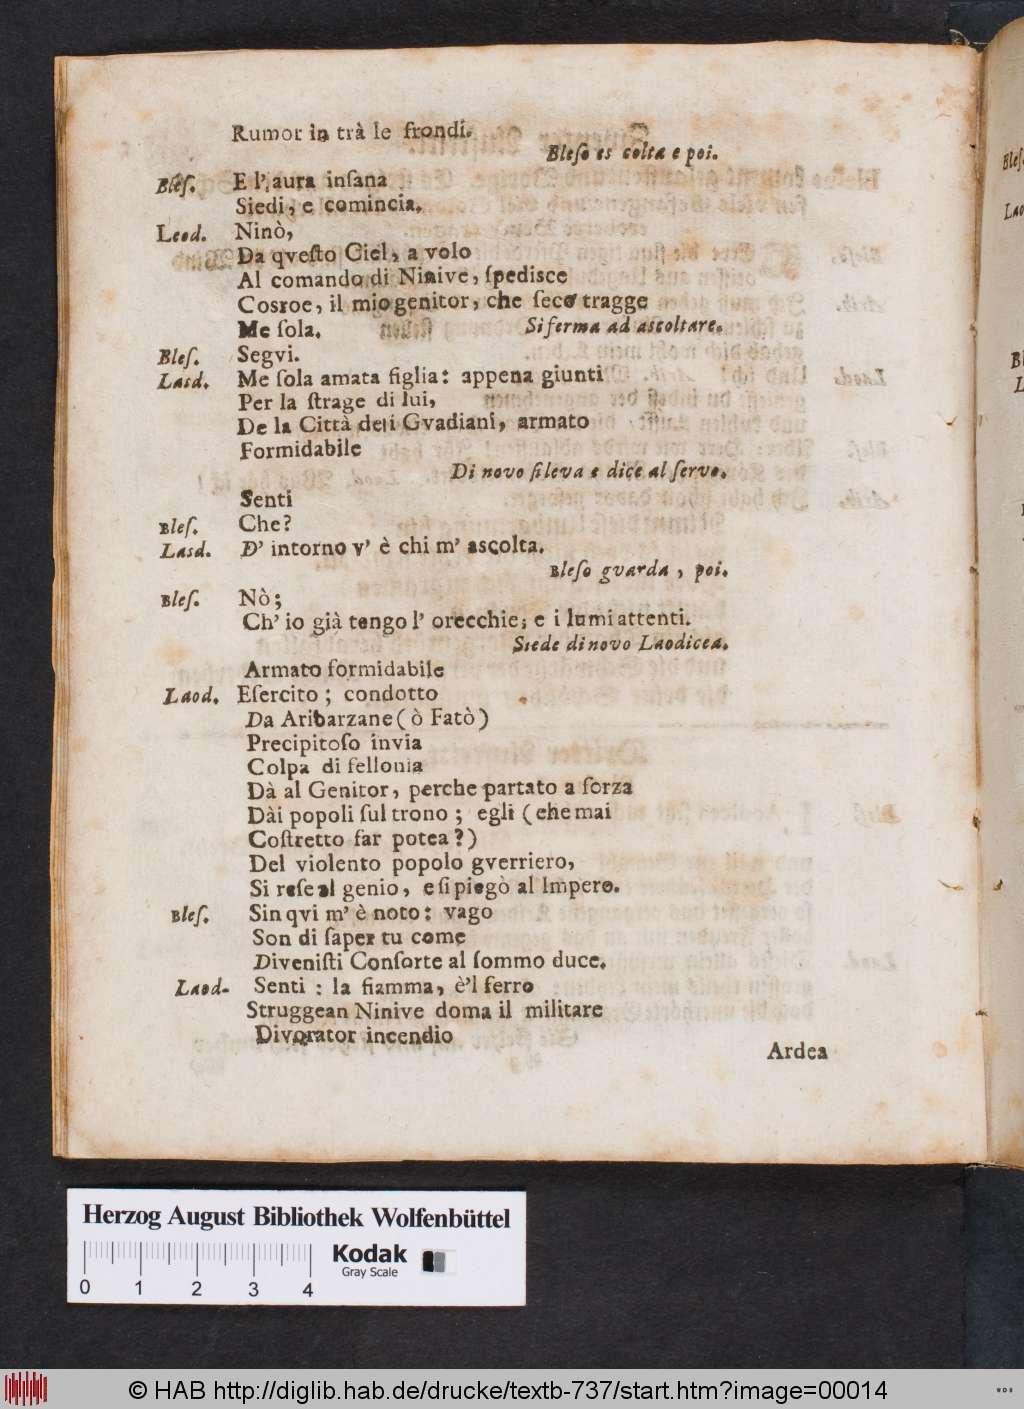 Rumor in trà le frondi.
Bleſo es colta e poi.
Bleſ. E l'aura inſana
Siedi, e comincia.
Leod. Ninò,
Da qveſto Ciel, a volo
Al comando di Ninive, ſpedisce
Cosroe, il mio genitor, che ſeco tragge
Me ſola. Si ferma ad ascoltare.
Bleſ. Segvi.
Lasd. Me ſola amata figlia: appena giunti
Per la ſtrage di lui,
De la Città deli Gvadiani, armato
Formidabile
Di novo ſileva e dice al ſervo.
Senti
Bleſ. Che?
Lasd. D' intorno v' è chi m' ascolta.
Bleſo gvarda, poi.
Bleſ. Nò;
Ch' io già tengo l' orecchie; e i lumi attenti.
Siede di novo Laodicea.
Armato formidabile
Laod. Eſercito; condotto
Da Aribarzane (ò Fatò)
Precipitoſo invia
Colpa di fellonia
Dà al Genitor, perche partato a forza
Dài popoli ſul trono; egli (che mai
Coſtretto far potea?)
Del violento popolo gverriero,
Si reſe al genio, e ſi piegò al Impero.
Bleſ. Sin qvi m' è noto: vago
Son di ſaper tu come
Diveniſti Conſorte al ſommo duce.
Laod- Senti: la fiamma, è'l ferro
Struggean Ninive doma il militare
Divorator incendio
Ardea
Herzog August Bibliothek Wolfenbüttel
0 1 2 3 4
Kodak
Gray Scale
© HAB http://diglib.hab.de/drucke/textb-737/start.htm?image=00014